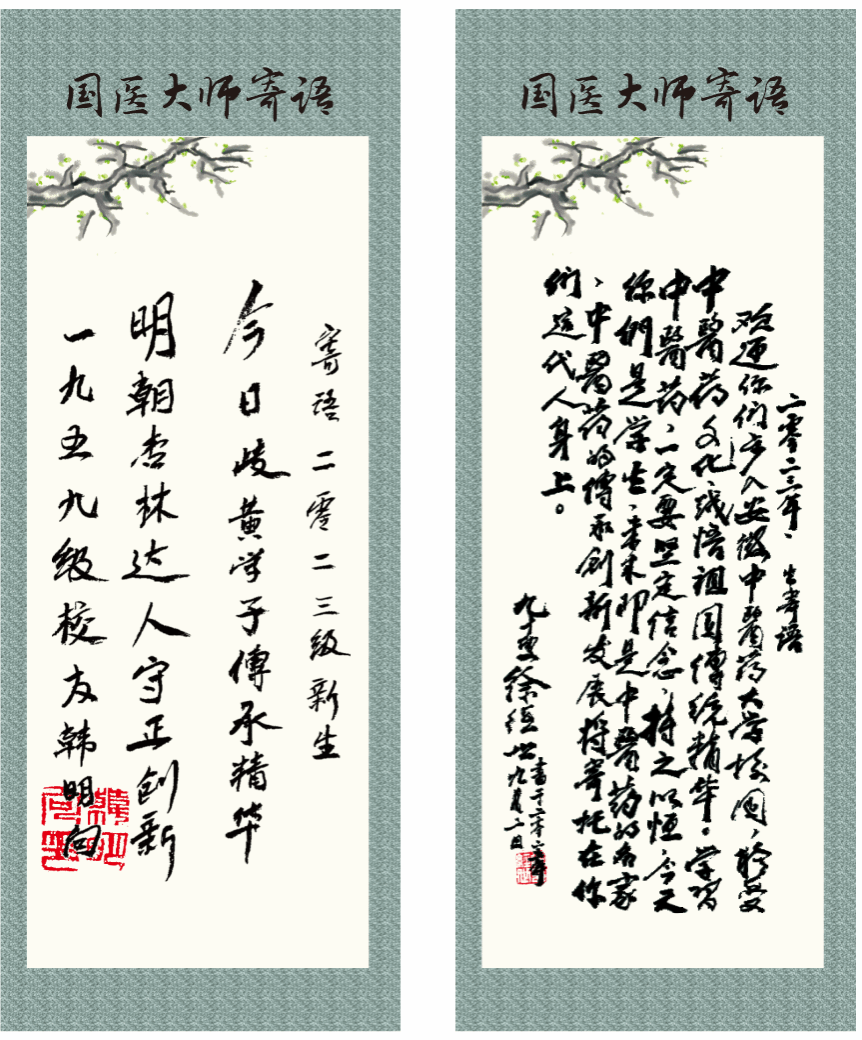 国医大师寄语
寄语二零二三级新生
今日岐黄学子傳承精华
明朝杏林达人守正创新
一九五九级校友韩明向
国医大师寄语
二零二三年，生寄语
欢迎你们步入安徽中醫药大学校园，於受
中醫药文化，感悟祖国傳统精华。学習
中醫药，一定要坚定信念，持之以恒，今天
你们是学生，未来即是中醫药的名家
，中醫药的傳承创新发展将寄托在你
们这代人身上。
九十叟徐经世
書于二零二三年
九月二日